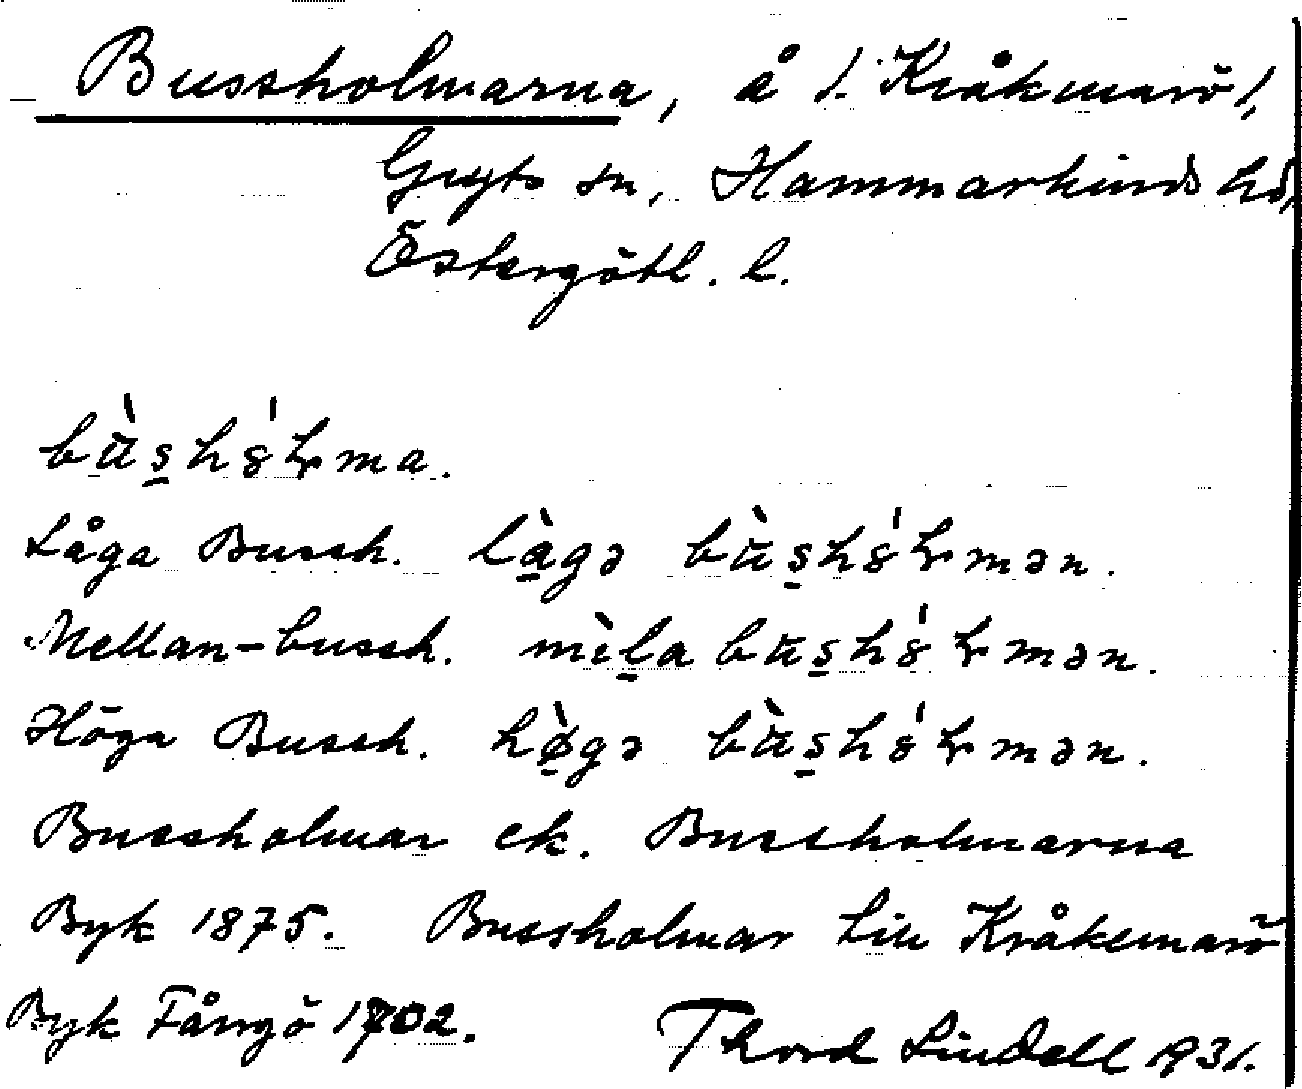 Bussholmarna, å /. Kråkmarö /,
Gryts sn, Hammarkinds hd,
Östergötl. l.
bùs̱hólma.
Låga Bussh. làgə bùs̱hólmən.
Mellan-bussh. mèḻa bus̱hólmən.
Höga Bussh. hø̀gə bùs̱hólmən.
Bussholmar ek. Bussholmarna
Byk 1875. Bussholmar Liu Kråkemarö
Byk Fångö 1702. Thord Lindell 1931.